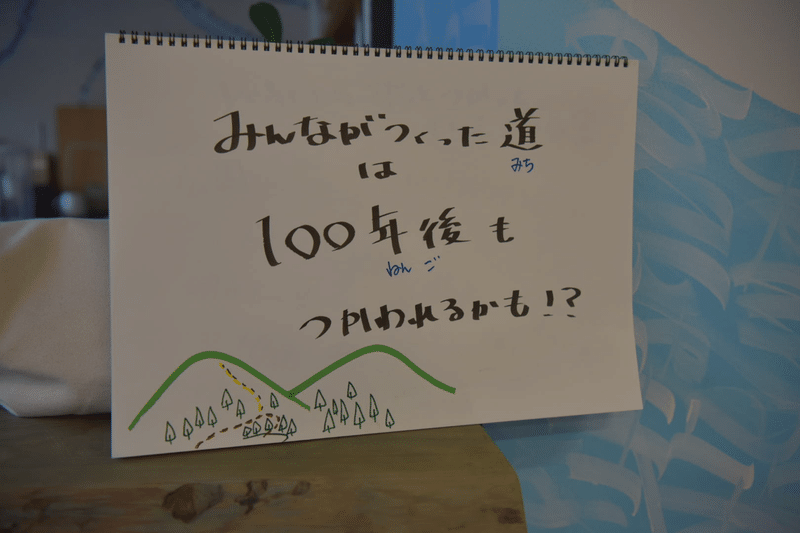 みんながつくった道
みち
は
100年後も
ねん ご
つかわれるかも!?